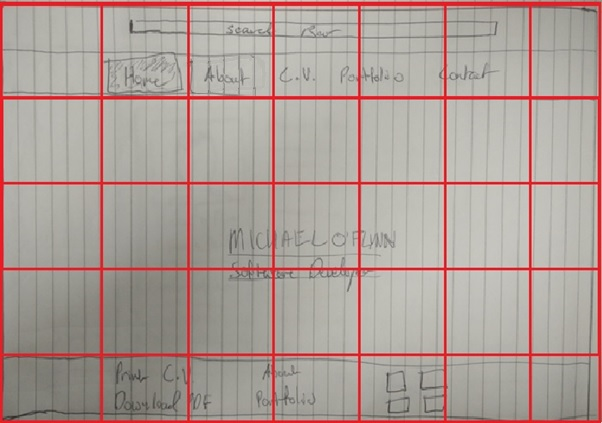 Search Bar
Home About C.V. Portfolio Contact
MICHAEL O'FLYNN
Software Developer
Print C.V. About
Download PDF Portfolio